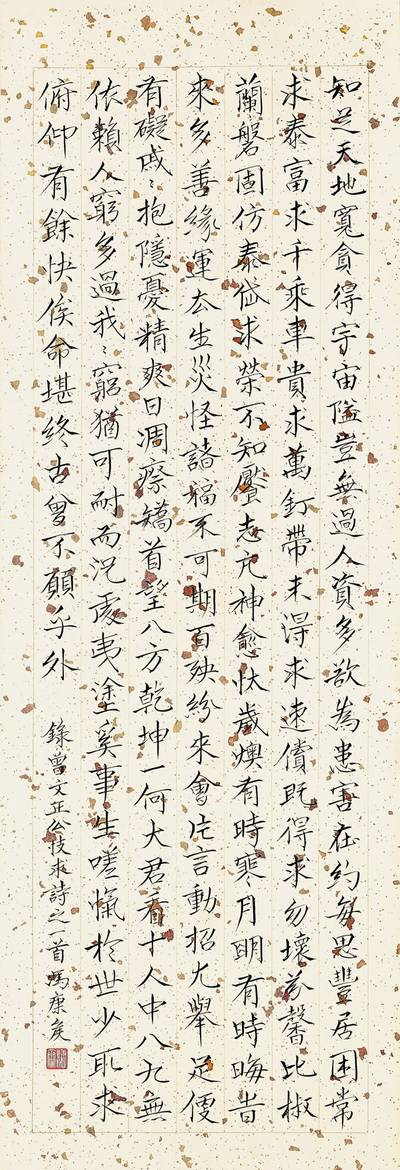 知足天地寬貪得宇宙隘豈無過人資多欲為患害在約每思豐居困常
求泰富求千乘車貴求萬釘帶未得求速償既得求勿壞芬馨比椒
蘭磐固仿泰岱求榮不知饜志亢神愈忲歲燠有時寒月明有時晦旹
來多善緣運去生災怪諸福不可期百殃紛來會片言動招尤舉足便
有礙戚〻抱隱憂精爽日凋瘵矯首望八方乾坤一何大君看十人中八九無
依賴人窮多過我〻窮猶可耐而況處夷塗奚事生嗟愾於世少所求
俯仰有餘快俟命堪終古曾不願乎外
錄曾文正公忮求詩之一首馮康侯